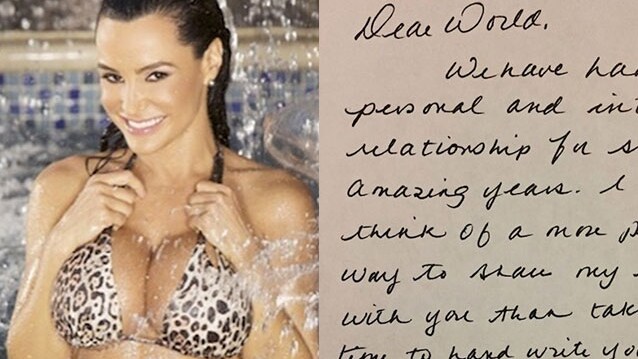 Dear World,
We have had
personal and int
relationship for s
amazing years. I
think of a more p
way to share my
with you than tak
time to hand write yo